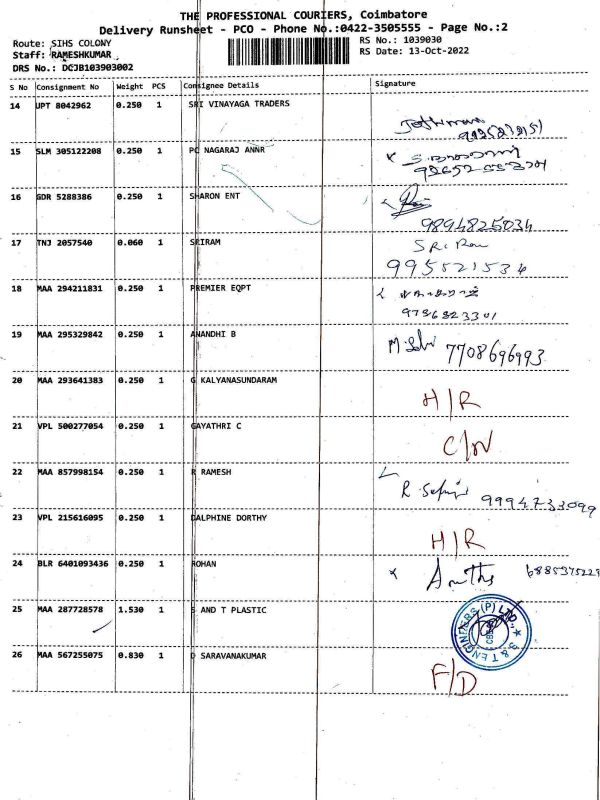 THE PROFESSIONAL COURIERS, Coimbatore
Delivery Runsheet - PCO - Phone No.:0422-3505555 - Page No.:2
Route: SIHS COLONY RS No.: 1039030
Staff: RAMESHKUMAR RS Date: 13-Oct-2022
DRS No.: DCJB103903002
S No Consignment No Weight PCS Consignee Details Signature
14 UPT 8042962 0.250 1 SRI VINAYAGA TRADERS
15 SLM 305122208 0.250 1 PC NAGARAJ ANNR
16 GDR 5288386 0.250 1 SHARON ENT
9894825034
17 TNJ 2057540 0.060 1 SRIRAM
995521534
18 MAA 294211831 0.250 1 PREMIER EQPT
9786823301
19 MAA 295329842 0.250 1 ANANDHI B
7708696993
20 MAA 293641383 0.250 1 G KALYANASUNDARAM
H/R
21 VPL 500277054 0.250 1 GAYATHRI C
C/N
22 MAA 857998154 0.250 1 R RAMESH
9994733099
23 VPL 215616095 0.250 1 DALPHINE DORTHY
H/R
24 BLR 6401093436 0.250 1 ROHAN
6885375229
25 MAA 287728578 1.530 1 S AND T PLASTIC
S & T ENGINEERS (P) LTD.,
26 MAA 567255075 0.830 1 SARAVANAKUMAR
F/D